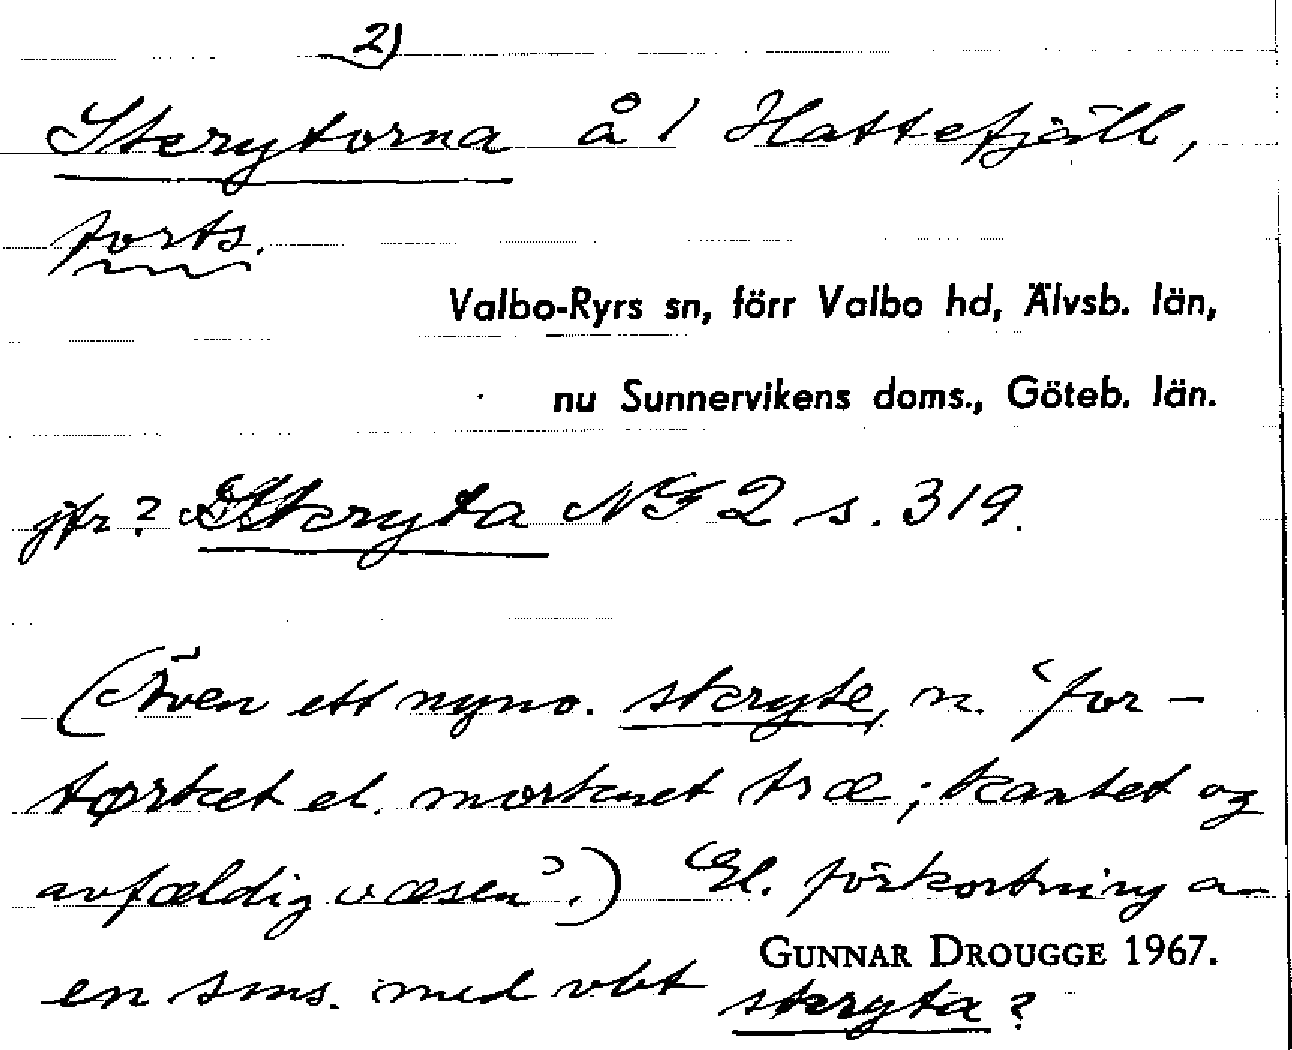 2)
Skrytorna å 1 Hattefjäll,
forts.
Valbo-Ryrs sn, förr Valbo hd, Älvsb. län,
nu Sunnervikens doms., Göteb. län.
jfr? Skryta NG 2 s. 319.
(Även ett nyno. skryte, n. "for-
tørket el. morknet træ; kantet og
avfældig væsen".) El. förkortning a
en sms. med vbt skryta?
GUNNAR DROUGGE 1967.